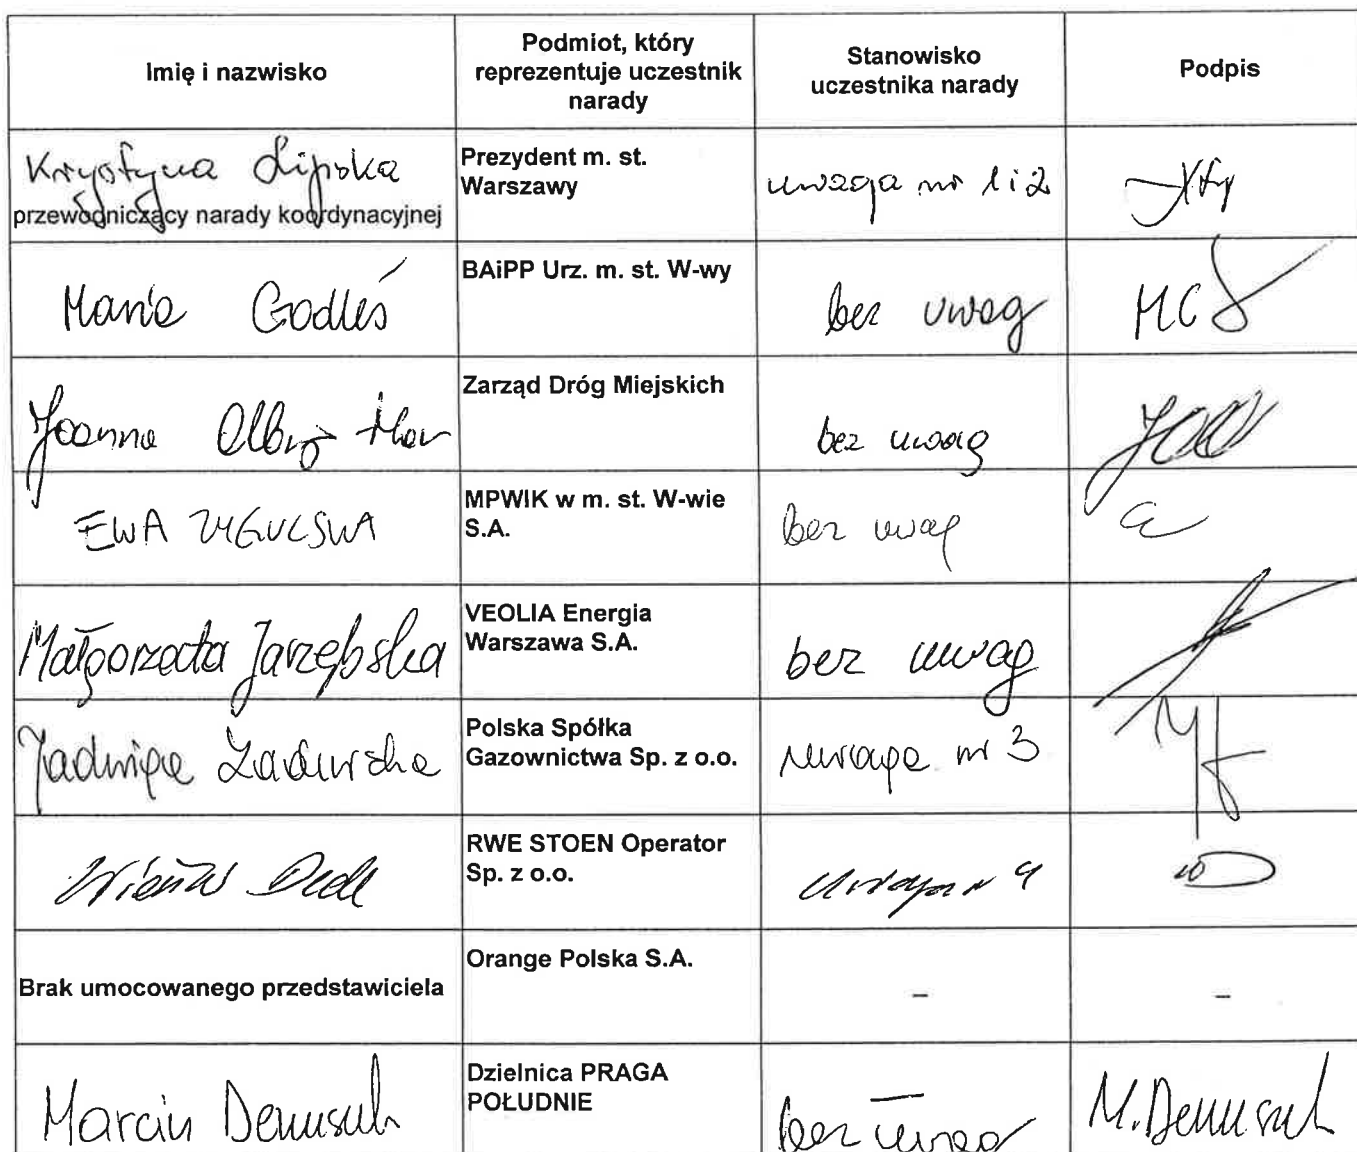 Imię i nazwisko
Podmiot, który
reprezentuje uczestnik
narady
Stanowisko
uczestnika narady
Podpis
Krystyna Lipska
przewodniczący narady koordynacyjnej
Prezydent m. st.
Warszawy
uwaga nr 1 i 2
Maria
BAiPP Urz. m. st. W-wy
bez uwag
Joanna
Zarząd Dróg Miejskich
bez uwag
EWA
MPWIK w m. st. W-wie
S.A.
bez uwag
Małgorzata Jarzębska
VEOLIA Energia
Warszawa S.A.
bez uwag
Jadwiga
Polska Spółka
Gazownictwa Sp. z o.o.
uwaga nr 3
RWE STOEN Operator
Sp. z o.o.
uwaga nr 4
Brak umocowanego przedstawiciela
Orange Polska S.A.
–
–
Marcin
Dzielnica PRAGA
POŁUDNIE
bez uwag
M.